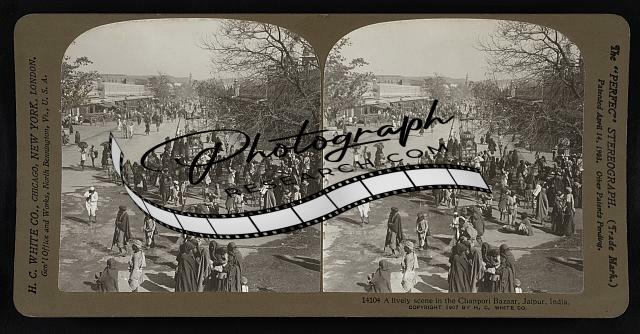 H. C. WHITE CO., CHICAGO, NEW YORK, LONDON.
Gen'l Office and Works, North Bennington, Vt., U. S. A.
Photograph
RESEARCH.COM
The "PERFEC" STEREOGRAPH. (Trade Mark.)
Patented April 14, 1903. Other Patents Pending.
14104 A lively scene in the Chanpori Bazaar, Jaipur, India.
COPYRIGHT 1907 BY H. C. WHITE CO.